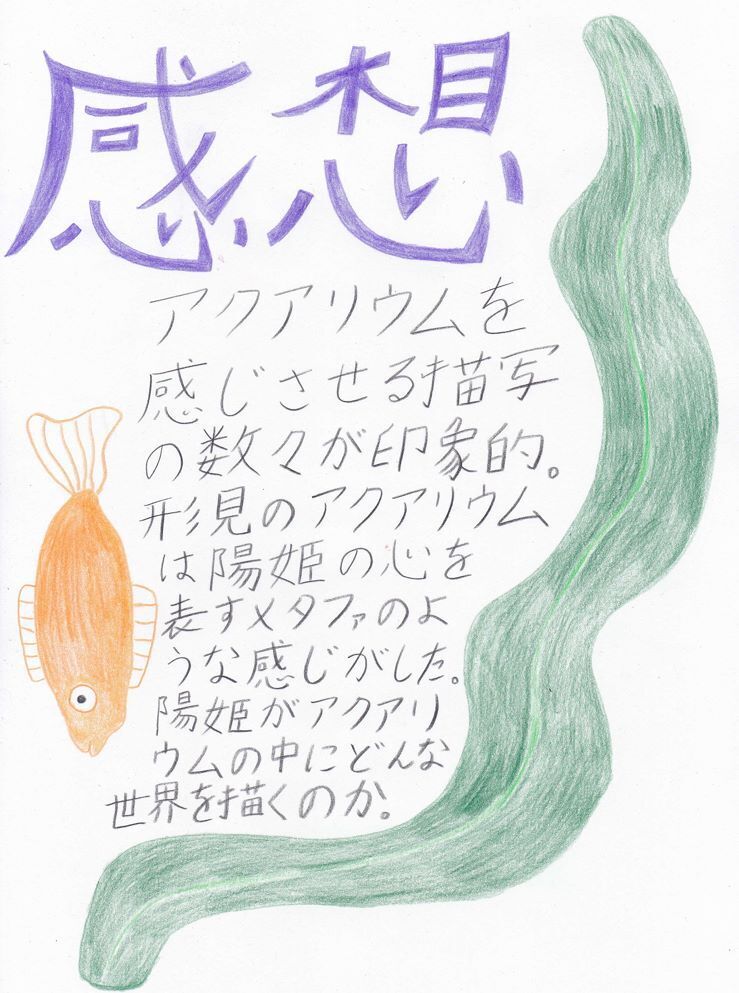 感想
アクアリウムを
感じさせる描写
の数々が印象的。
形見のアクアリウム
は陽姫の心を
表すメタファのよ
うな感じがした。
陽姫がアクアリ
ウムの中にどんな
世界を描くのか。